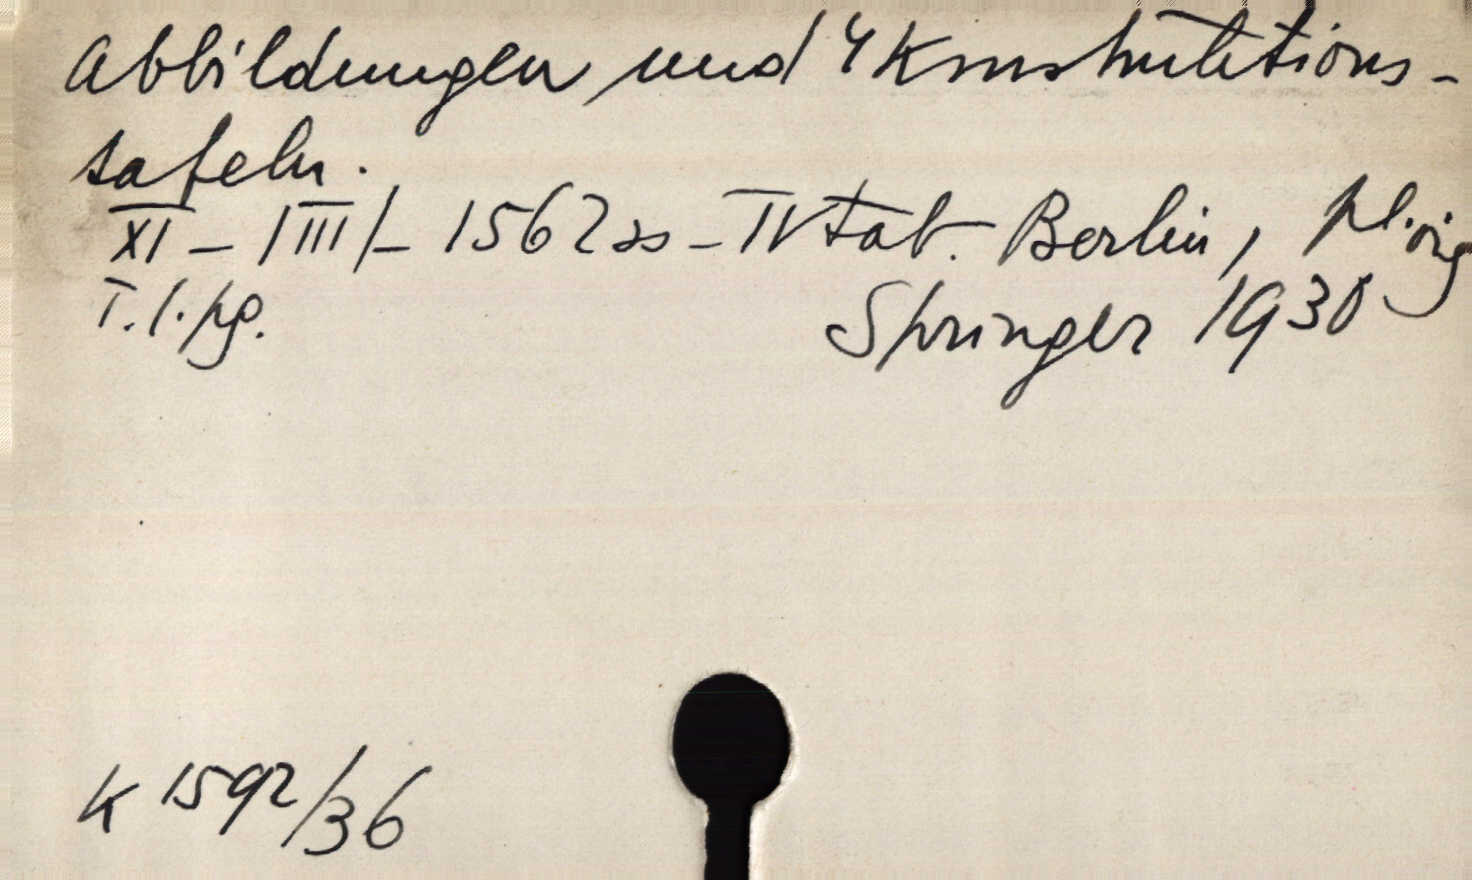 Abbildungen und 4 Konstitutions-
tafeln.
XI – /III/ – 1562 ss – IV tab. Berlin, pl. örig
T. l. pg. Springer 1930
K 1592/36